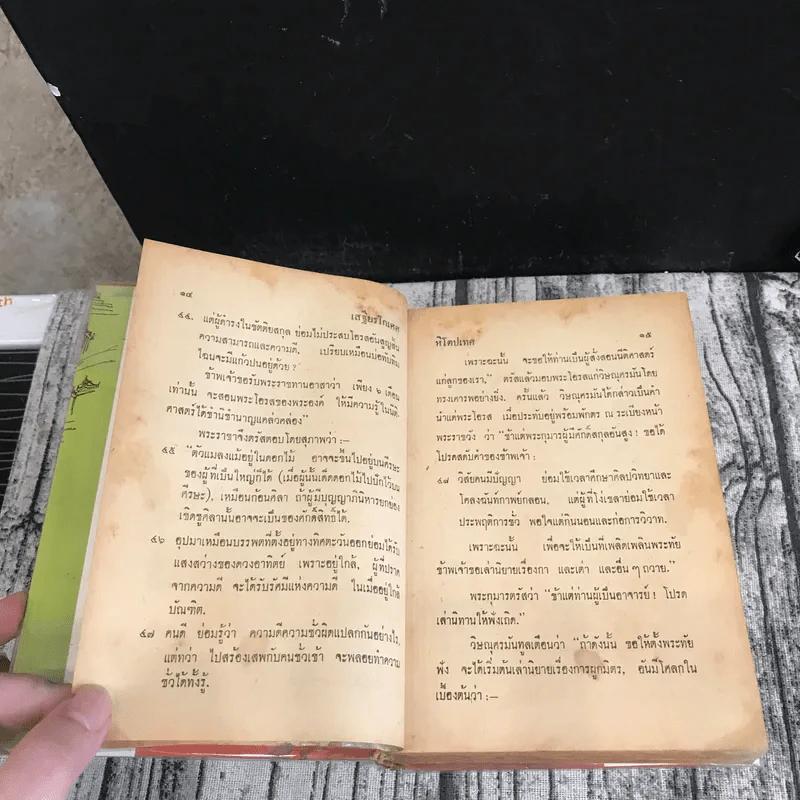 th
๑๔
เสฐียรโกเศศ
๔๔. แต่ผู้ดำรงในขัตติยสกุล ย่อมไม่ประสบโอรสอันสูญสิ้น
ความสามารถและความดี. เปรียบเหมือนบ่อทับทิม
ไฉนจะมีแก้วปนอยู่ด้วย?
ข้าพเจ้าขอรับพระราชทานอาสาว่า เพียง ๖ เดือน
เท่านั้น จะสอนพระโอรสของพระองค์ ให้มีความรู้ในนิติ-
ศาสตร์ได้ชำนิชำนาญแคล่วคล่อง"
พระราชาจึงตรัสตอบโดยสุภาพว่า :—
๔๕ "ตัวแมลงแม้อยู่ในดอกไม้ อาจจะขึ้นไปอยู่บนศีรษะ
ของผู้ที่เป็นใหญ่ก็ได้ (เมื่อผู้นั้นเด็ดดอกไม้ไปปักไว้บน
ศีรษะ), เหมือนก้อนศิลา ถ้าผู้มีบุญญาภินิหารยกย่อง
เชิดชูศิลานั้นอาจจะเป็นของศักดิ์สิทธิ์ได้.
๔๖ อุปมาเหมือนบรรพตที่ตั้งอยู่ทางทิศตะวันออกย่อมได้รับ
แสงสว่างของดวงอาทิตย์ เพราะอยู่ใกล้, ผู้ที่ปราศ
จากความดี จะได้รับรัศมีแห่งความดี ในเมื่ออยู่ใกล้
บัณฑิต.
๔๗ คนดี ย่อมรู้ว่า ความดีความชั่วผิดแปลกกันอย่างไร,
แต่ทว่า ไปสร้องเสพกับคนชั่วเข้า จะพลอยทำความ
ชั่วได้ทั้งรู้.
หิโตปเทศ
๑๕
เพราะฉะนั้น จะขอให้ท่านเป็นผู้สั่งสอนนีติศาสตร์
แก่ลูกของเรา," ตรัสแล้วมอบพระโอรสแก่วิษณุศรมันโดย
ทรงเคารพอย่างยิ่ง. ครั้นแล้ว วิษณุศรมันได้กล่าวเป็นคำ
นำแด่พระโอรส เมื่อประทับอยู่พร้อมพักตร ณ ระเบียงหน้า
พระราชวัง ว่า "ข้าแต่พระกุมารผู้มีศักดิ์สกุลอันสูง! ขอได้
โปรดสดับคำของข้าพเจ้า :
๔๗ วิสัยคนมีปัญญา ย่อมใช้เวลาศึกษาศิลปวิทยาและ
โคลงฉันท์กาพย์กลอน, แต่ผู้ที่โง่เขลาย่อมใช้เวลา
ประพฤติการชั่ว พอใจแต่กินนอนและก่อการวิวาท.
เพราะฉะนั้น เพื่อจะให้เป็นที่เพลิดเพลินพระทัย
ข้าพเจ้าขอเล่านิยายเรื่องกา และเต่า และอื่น ๆ ถวาย."
พระกุมารตรัสว่า "ข้าแต่ท่านผู้เป็นอาจารย์! โปรด
เล่านิทานให้ฟังเถิด."
วิษณุศรมันทูลเตือนว่า "ถ้าดังนั้น ขอให้ตั้งพระทัย
ฟัง จะได้เริ่มต้นเล่านิยายเรื่องการผูกมิตร, อันมีโศลกใน
เบื้องต้นว่า :—